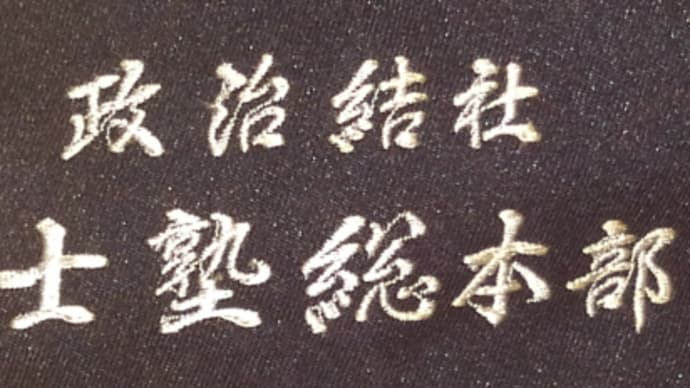 政治結社
士塾総本部